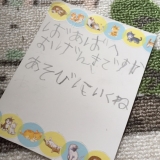 ばあばへ
おげんきですか
あそびにいくね